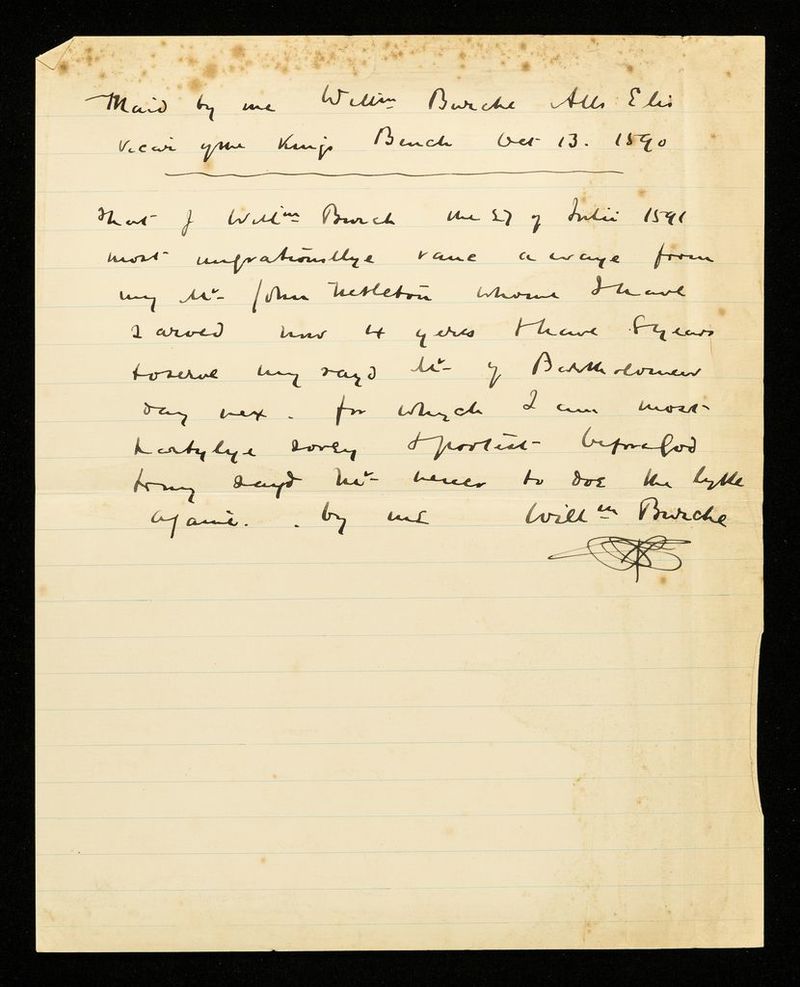 Maid by me Willm Burche Alls Elis
Vicar yme Kings Bench Oct 13. 1590
that I Willm Burch the 27 of Julii 1591
most ungrationsllye rane awaye from
my Mr John Netleton whome I have
sarved now 4 yeres & have 8 years
to serve my sayd Mr y Bartholomew
day nex. for whych I am most
hartylye sorey & protest before God
to my sayd Mr never to doe the lytke
againe. . by me Willm Burche